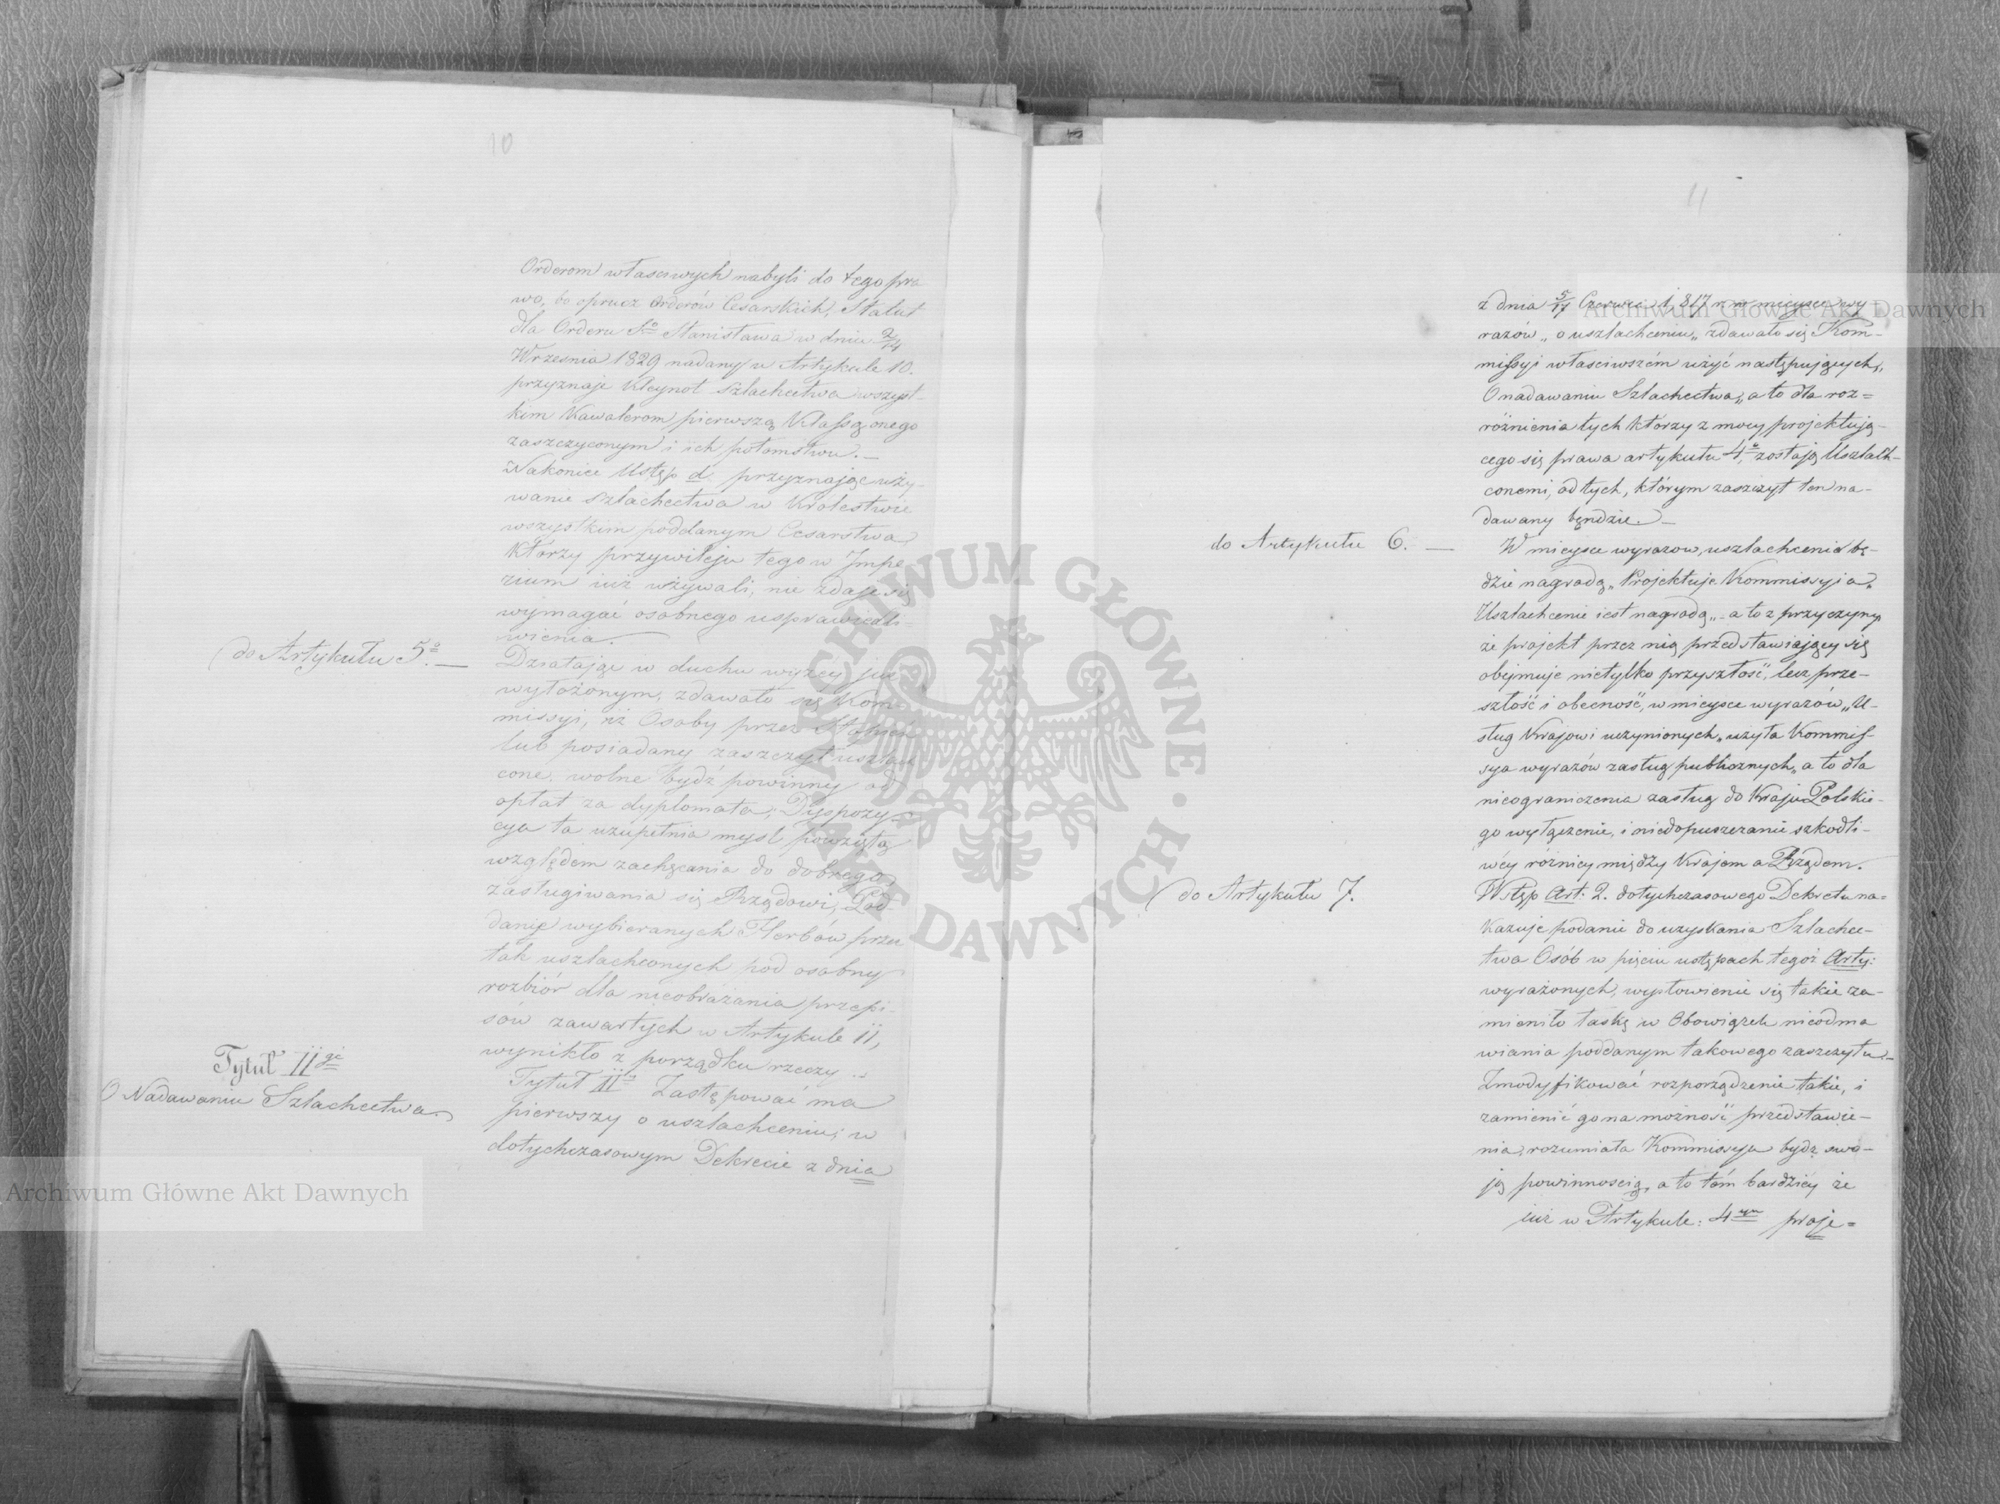 10
Orderom właściwych nabyli do tego pra
wo, bo oprucz Orderów Cesarskich, Statut
dla Orderu Sgo Stanisława w dniu 2/14
Września 1829 nadany w Artykule 10.
przyznaje Kleynot Szlachectwa wszyst-
kim Kawalerom pierwszą Klassą onego
zaszczyconym i ich potomstwu. —
Nakoniec Ustęp d. przyznając uży-
wanie szlachectwa w Królestwie
wszystkim poddanym Cesarstwa,
Którzy przywileju tego w Impe
rium już używali, nie zdaje się
wymagać osobnego usprawiedli-
wienia.
do Artykułu 5o. —
Działając w duchu wyżey już
wyłożonym, zdawało się Kom-
missyi, iż Osoby przez Stopień
lub posiadany zaszczyt uszlach
cone, wolne bydź powinny od
opłat za dyplomata; Dyspozy-
cya ta uzupełnia myśl powziętą
względem zachęcania do dobrego
zasługiwania się Rządowi; Pod-
danie wybieranych Herbów przez
tak uszlachconych pod osobny
rozbiór dla nieobrażania przepi-
sów zawartych w Artykule 11,
wynikło z porządku rzeczy.
Tytuł IIgi
O Nadawaniu Szlachectwa
Tytuł II Zastępować ma
pierwszy o uszlachceniu; w
dotychczasowym Dekrecie z dnia
11
z dnia 5/17 Czerwca 1,817 r. w mieysce wy
razów „o uszlachceniu„ zdawało się Kom-
missyi właściwszém użyć następujących„
O nadawaniu Szlachectwa„ a to dla roz=
różnienia tych którzy z mocy projektują-
cego się prawa artykułu 4o, zostają Uszlach-
conemi, od tych, którym zaszczyt ten na-
dawany będzie. —
do Artykułu 6. —
W mieysce wyrazow„ uszlachcenie bę-
dzie nagrodą„ Projektuje Kommissyia„
Uszlachcenie iest nagrodą„ - a to z przyczyny
że projekt przez nią przedstawiający się
obejmuje nietylko przyszłość, lecz prze-
szłość i obecność, w mieysce wyrazów „U-
sług Krajowi uczynionych„ użyła Kommis-
sya wyrazów zasług publicznych„ a to dla
nieograniczenia zasług do Kraju Polskie-
go wyłącznie, i niedopuszczanie szkodli-
wéy różnicy między Krajem a Rządem.
do Artykułu 7.
Wstęp Art: 2. dotychczasowego Dekretu na=
kazuje podanie do uzyskania Szlachec-
twa Osób w pięciu ustępach tegoż Arty:
wyrażonych, wysłowienie się takie za-
mieniło łaskę w Obowiązek nieodma
wiania poddanym takowego zaszczytu.
Zmodyfikować rozporządzenie takie, i
zamienić go na możność przedstawie-
nia, rozumiała Kommissya bydź swo-
ją powinnością, a to tém bardziéy że
już w Artykule: 4ym proje=
Archiwum Główne Akt Dawnych
Archiwum Główne Akt Dawnych
ARCHIWUM GŁÓWNE AKT DAWNYCH